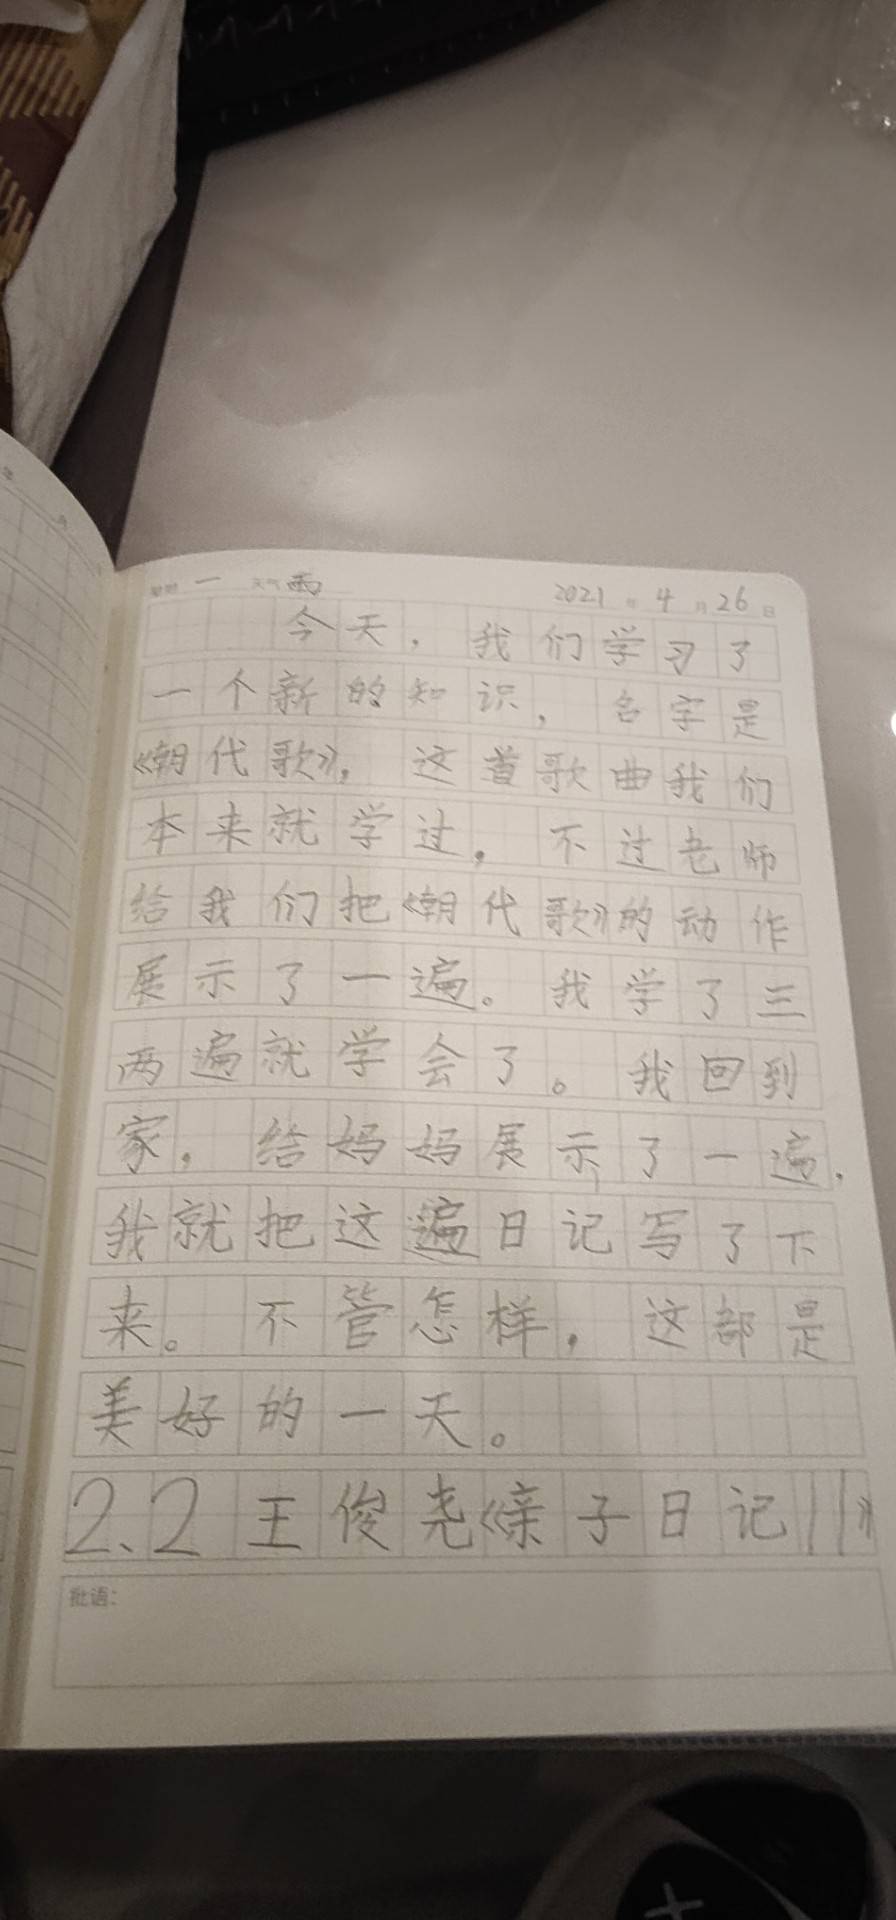 星期 一 天气 雨 2021 年 4 月 26 日
今天，我们学习了
一个新的知识，名字是
《朝代歌》，这首歌曲我们
本来就学过，不过老师
给我们把《朝代歌》的动作
展示了一遍。我学了三
两遍就学会了。我回到
家，给妈妈展示了一遍，
我就把这遍日记写了下
来。不管怎样，这都是
美好的一天。
2.2王俊尧《亲子日记11》
批语：